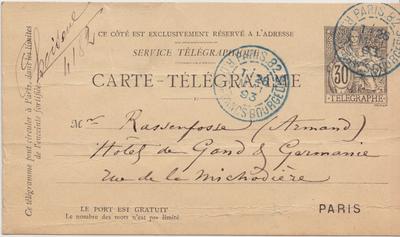 CE CÔTÉ EST EXCLUSIVEMENT RÉSERVÉ A L'ADRESSE
SERVICE TÉLÉGRAPHIQUE
CARTE-TÉLÉGRAMME
PARIS 82
93
Fcs BOURGEOIS
PARIS 82
93
Fcs BOURGEOIS
30
TÉLÉGRAPHE
Ce télégramme peut circuler à Paris, dans les limites
de l'enceinte fortifiée.
Mr Rassenfosse (Armand)
Hôtel de Gand & Germanie
rue de la Michodière
LE PORT EST GRATUIT
Le nombre des mots n'est pas limité
PARIS